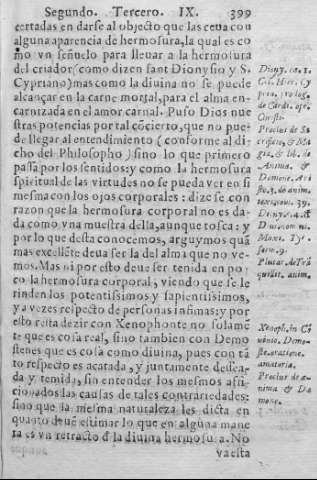 Segundo. Tercero. IX. 399
certadas en darse al objecto que las ceua con
alguna aparencia de hermosura, la qual es co
mo vn señuelo para lleuar a la hermosura
del criador (como dizen sant Dionysio y S.
Cypriano) mas como la diuina no se puede
alcançar en la carne mortal, para el alma en-
carnizada en el amor carnal. Puso Dios nue
stras potencias por tal cõcierto, que no pue-
de llegar al entendimiento (conforme al di
cho del Philosopho) sino lo que primero
passa por los sentidos: y como la hermosura
spiritual de las virtudes no se pueda ver en si
mesma con los ojos corporales: dize se con
razon que la hermosura corporal no es da-
da como vna muestra della, aunque tosca: y
por lo que desta conocemos, arguymos quã
mas excellẽte deua ser la del alma que no ve-
mos. Mas ni por esto deue ser tenida en po-
co la hermosura corporal, viendo que se le
rinden los potentissimos y sapientissimos,
y a vezes respecto de personas infimas: y por
esto resta dezir con Xenophonte no solamẽ
te que es cosa real, sino tambien con Demo
stenes que es cosa como diuina, pues con tã
to respecto es acatada, y juntamente dessea-
da y temida, sin entender los mesmos afi-
cionados las causas de tales contrariedades:
sino que la mesma naturaleza les dicta en
quanto deuẽ estimar lo que en alguna mane
ra es vn retracto đ la diuina hermosura. No
va esta
Diony. ca. 1.
Cypria.
de Cardi. ope.
Christi.
Proclus de Sa
crificio, & Ma
gia, & lib. de
Anima, &
Dæmone. Ari
sto. 3. de anim.
text. com. 39.
Diony. 4. &
Diuin. nomi.
Maxi. Tyr.
serm. 9.
Plutar. de Trã
quilit. anim.
Xenoph. in Cõ
uiuio. Demo-
stẽ. oratione.
amatoria.
Proclus de a-
nima & Dæ
mone.